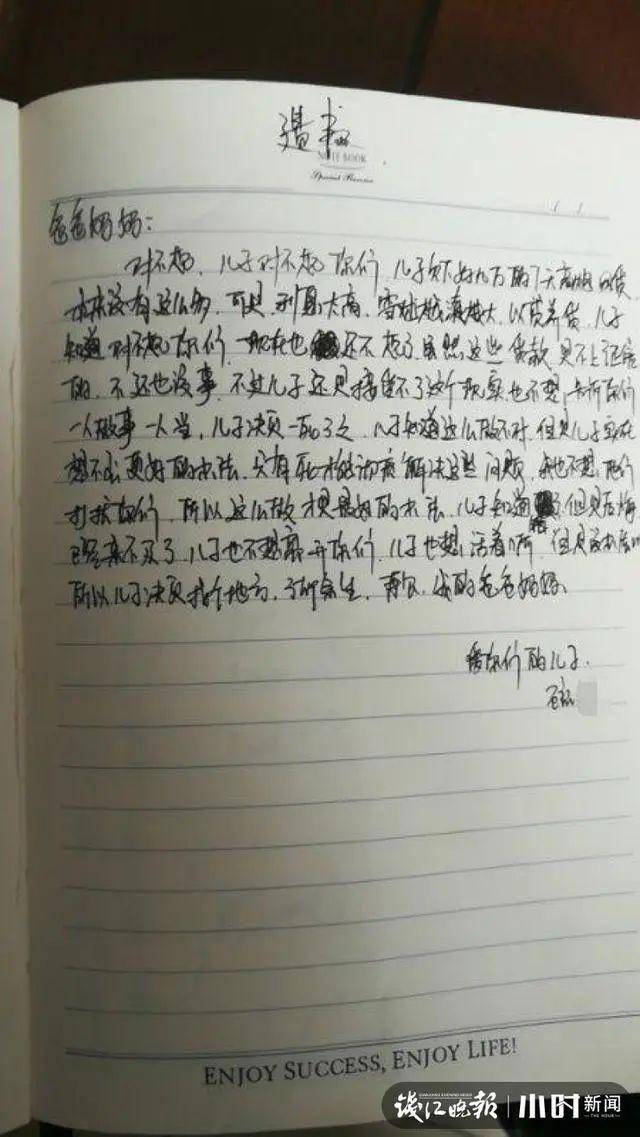 遗书
NOTE BOOK
Special Re
爸爸妈妈：
对不起、儿子对不起你们，儿子欠下好几万的7天高息
本来没有这么多，可是利息太高，雪越滚越大，以贷养贷，儿子
知道对不起你们，现在也还不起了，虽然这些贷款是不上征信
的，不还也没事，不过儿子还是接受不了这个现实，也不想
一人做事一人当，儿子决定一死了之，儿子知道这么做不对，但是儿子实在
想不出更好的办法，只有死才能彻底解决这些问题，我也不想他们
打扰你们，所以这么做才是最好的办法，儿子知道但是后悔
已经来不及了，儿子也不想离开你们，儿子也想活着，但是没办法
所以儿子决定找个地方，了断余生，再见，我的爸爸妈妈。
爱你们的儿子。
ENJOY SUCCESS, ENJOY LIFE!
钱江晚报 小时新闻
QIANJIANG EVENING NEWS THE HOUR